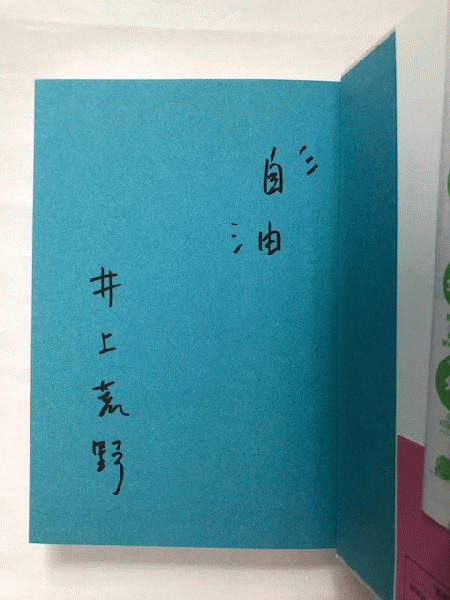 自由
井上荒野